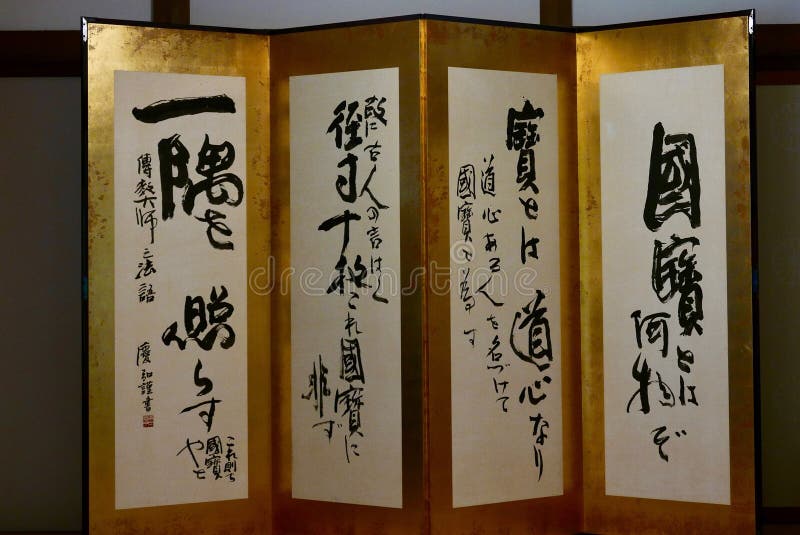 國寳とは
何物ぞ
寳とは道心なり
道心ある人を名づけて
國寳と為す
故に古人の言はく
径寸十枚これ國寳に
非ず
一隅を
照らす
これ則ち
國寳
やと
傳教大師之法語
慶弘謹書
dreamstime